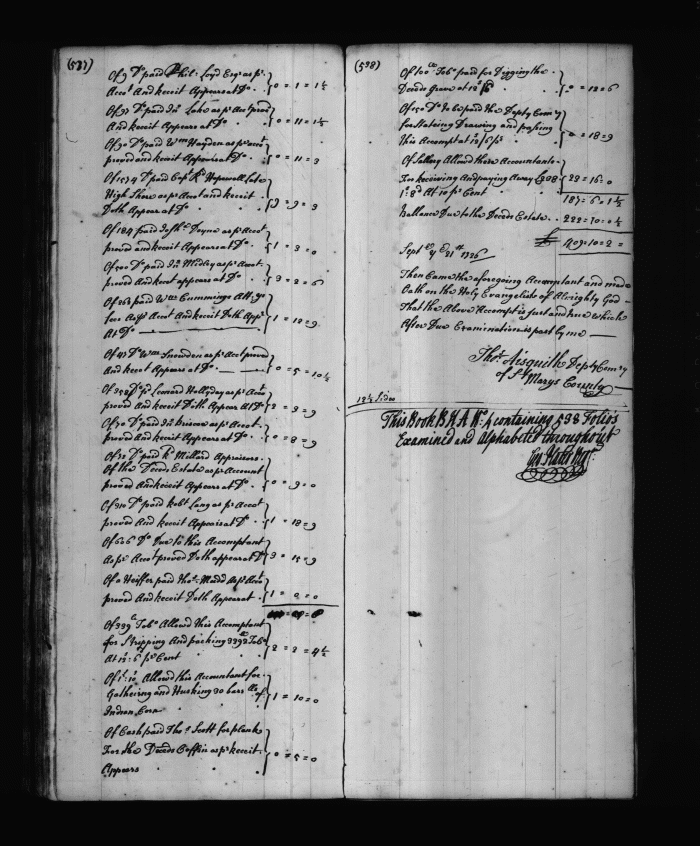 (537)
Of 9 Do paid Phil: Loyd Esqr as pr
Accot And Receit Appears at Do . 0 = 1 = 1½
Of 89 Do paid Jno Lake as pr Accot prov'd
And Receit Appears at Do . 0 = 11 = 1½
Of 90 Do paid Wm Hayden as pr accot
proved and Receit Appears at Do . 0 = 11 = 3
Of 1594 Do paid Capt Rd Hopewell Late
High Shere as pr Accot and Receit
Doth Appear at Do . 9 = 9 = 3
Of 184 paid Doyne as pr Accot
proved and Receit Appears at Do . 1 = 3 = 0
Of 500 Do paid Jno Medley as pr Accot
proved and Recet appears at Do . 3 = 2 = 6
Of 262 paid Wm Cummings Atty
for as pr Accot And Receit Doth Appr
At Do 1 = 12 = 9
Of 47 Do Wm Snowden as pr Accot proved
And Recet Appears at Do . 0 = 5 = 10½
Of 352 Do pd Leonard Hollyday as pr Accot
proved And Receit Doth Appear At Do 2 = 3 = 9
Of 70 Do paid Jno Briscoe as pr Accot
proved And Receit Appears at Do . 0 = 8 = 9
Of 72 Do paid Millard Appraisers
Of the Deceds Estate as pr Account
proved And Receit Appears at Do . 0 = 9 = 0
Of 310 Do paid Robt Lang as pr Accot
proved And Receit Appears at Do 1 = 18 = 9
Of 606 Do Due to this Accomptant
As pr Accot proved Doth appear at Do 3 = 15 = 9
Of a Heiffer paid Thos Madd as pr Accot
proved And Receit Doth Appear at . 1 = 0 = 0
Of 339 Tobo Allowed this Accomptant
for Stripping And packing 3393 Tobo
At 12: 6 pr Cent 2 = 2 = 4½
Of 1: 10 Allowd this Accountant for
Gathering and Husking 30 barrlls of
Indian Corn 1 = 10 = 0
Of Cash paid Thos Scott for plank
For the Deceds Coffin as pr Receit
Appears 0 = 5 = 0
(538)
Of 100 Tobo paid for Digging the
Deceds Grave at 12 0 = 12 = 6
Of 150 Do to be paid the Depty Comry
for Stateing Drawing and passing
this Accompt at 12/6 pr 0 = 18 = 9
Of Sallery Allowd these Accountants
For Receiving And paying Away £208 22 = 16 = 0
1: 8d At 10 pr Cent 187 = 0 = 1½
Ballance Due to the Deceds Estate . . 222 = 10 = 0½
£ 409 = 10 = 2
Septr ye 21st 1726
Then Came the aforegoing Accomptant and made
Oath on the Holy Evangelists of Almighty God
That the Above Accompt is just and true which
After Due Examination is past by me
Thos Aisquith Depty Comry
of St Marys County
12½ Sides
This Book B. H. A. No. 4 containing 538 Folio's
Examined and Alphabeted throughout